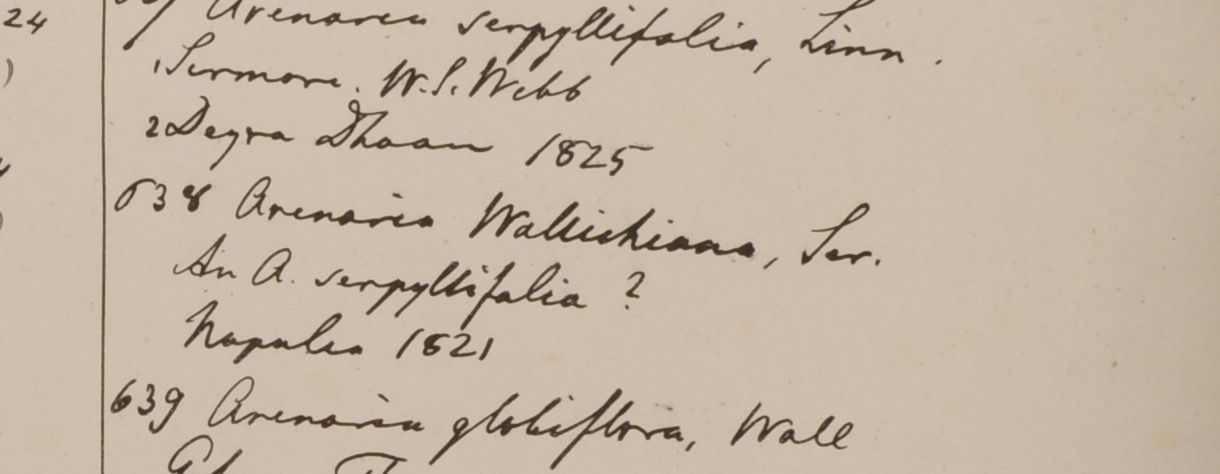 24
Arenaria serpyllifolia, Linn.
1 Sirmore. W.S. Webb
2 Deyra Dhoon 1825
638 Arenaria Wallichiana, Ser.
An A. serpyllifolia?
Napalia 1821
639 Arenaria globiflora, Wall